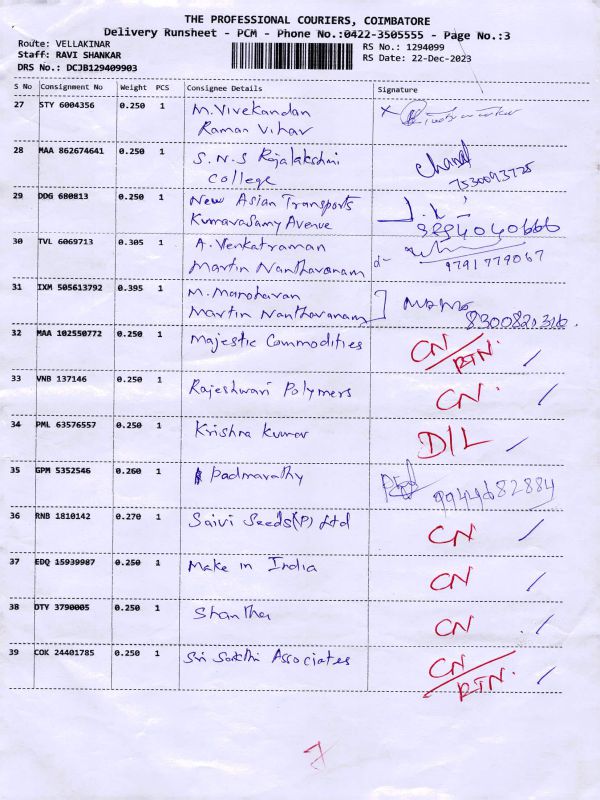 THE PROFESSIONAL COURIERS, COIMBATORE
Delivery Runsheet - PCM - Phone No.:0422-3505555 - Page No.:3
Route: VELLAKINAR
Staff: RAVI SHANKAR
DRS No.: DCJB129409903
RS No.: 1294099
RS Date: 22-Dec-2023
S No Consignment No Weight PCS Consignee Details Signature
27 STY 6004356 0.250 1 M. Vivekandan
Raman Vihar
28 MAA 862674641 0.250 1 S.N.S Rajalakshmi
College
29 DDG 680813 0.250 1 New Asian Transports
Kumarasamy Avenue 8894040666
30 TVL 6069713 0.305 1 A. Venkatraman
Martin Nanthavanam 9791779067
31 IXM 505613792 0.395 1 M. Manoharan
Martin Nanthavanam
32 MAA 102550772 0.250 1 Majestic Commodities CN/RTN.
33 VNB 137146 0.250 1 Rajeshwari Polymers CN.
34 PML 63576557 0.250 1 Krishna Kumar D/L
35 GPM 5352546 0.260 1 Padmavathy 9944682884
36 RNB 1810142 0.270 1 Saivi Seeds(P) Ltd CN
37 EDQ 15939987 0.250 1 Make in India CN
38 DTY 3790005 0.250 1 Shantha CN
39 COK 24401785 0.250 1 Sri Sakthi Associates CN/RTN.
7